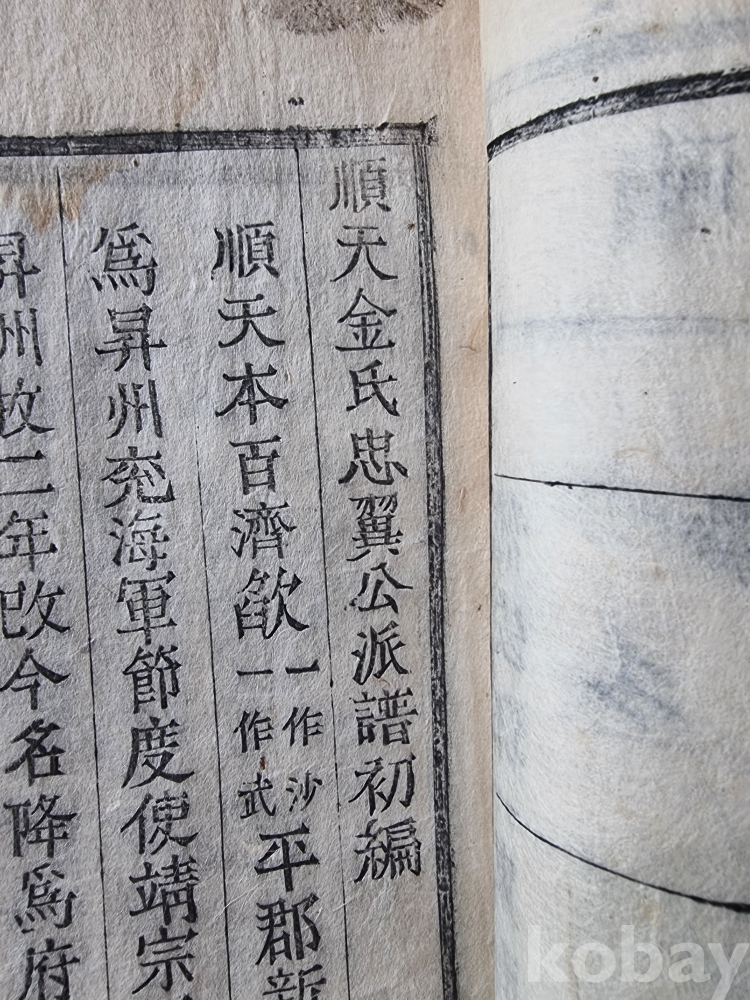 順天金氏忠翼公派譜初編
順天本百濟欿一作沙一作武平郡新
爲昇州兗海軍節度使靖宗
昇州牧二年改今名降爲府
kobay